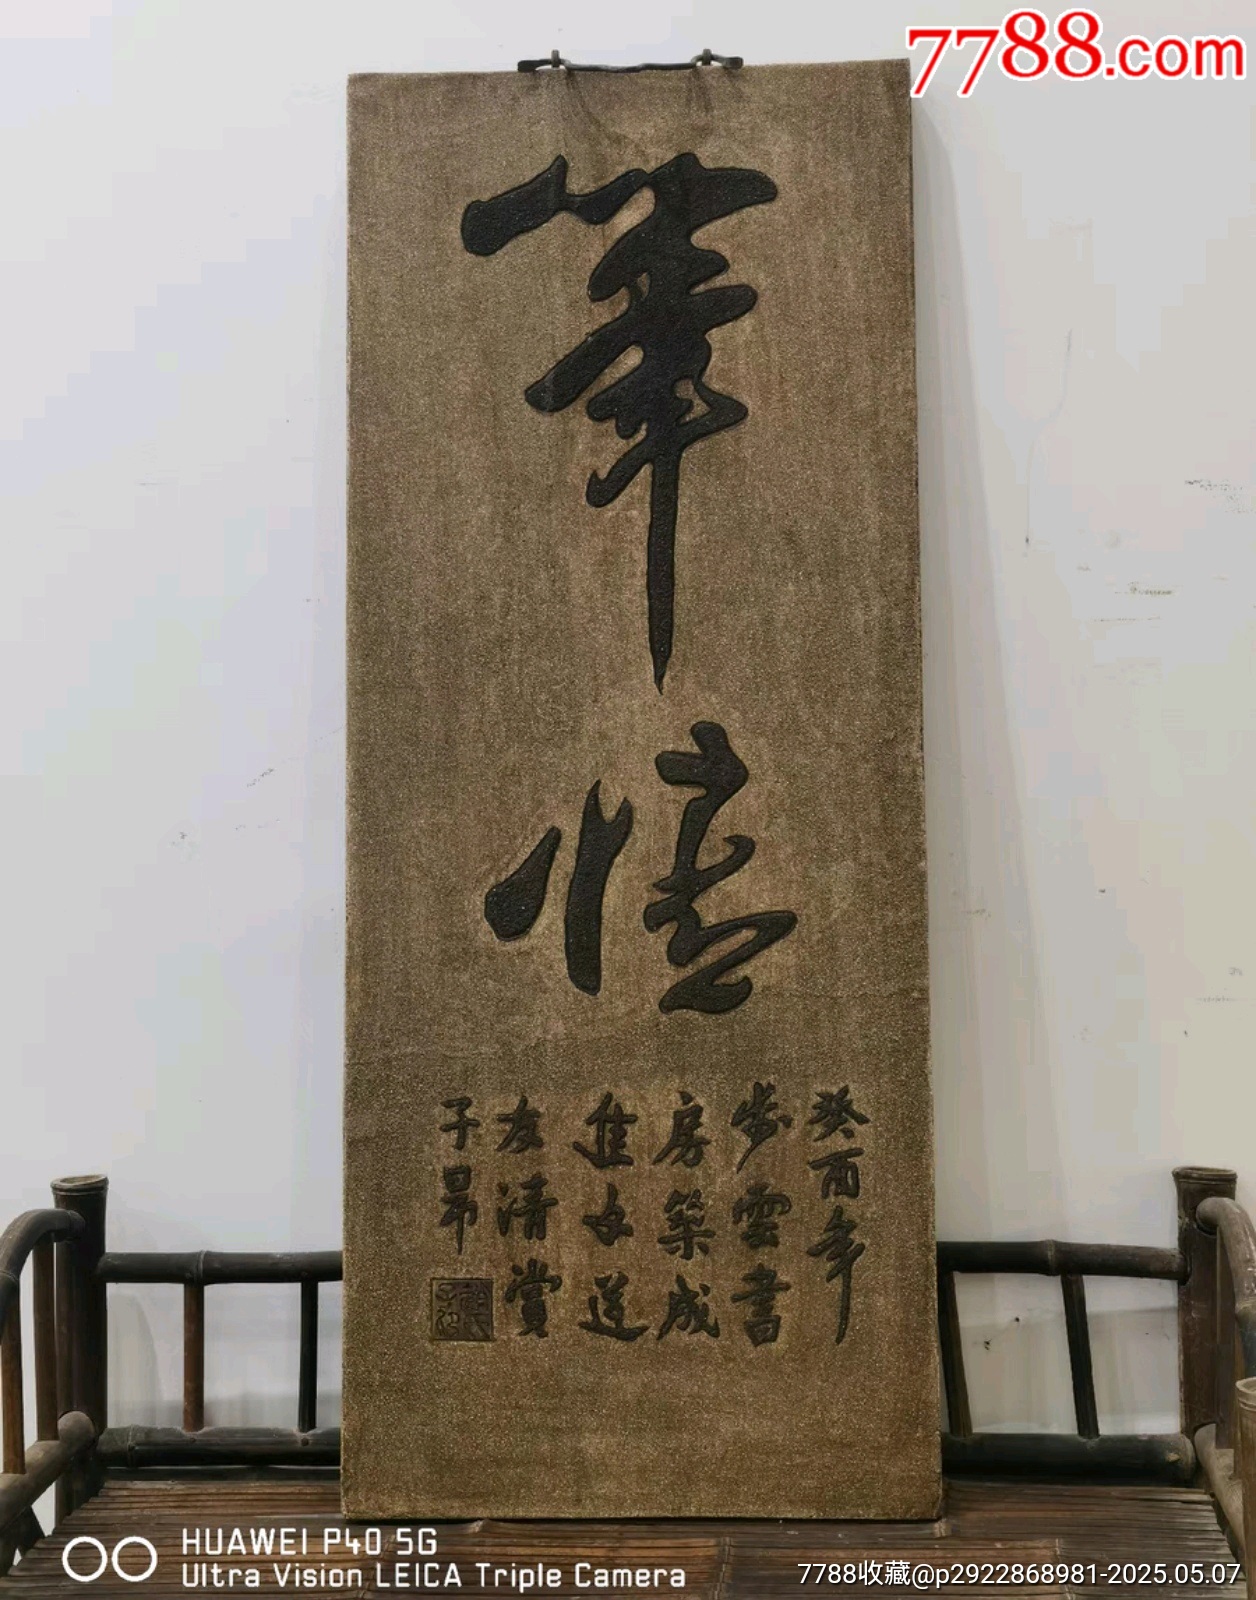 7788.com
筆
情
癸酉年
步雲書
房築成
進道
友清賞
子昂
HUAWEI P40 5G
Ultra Vision LEICA Triple Camera
7788收藏@p2922868981-2025.05.07